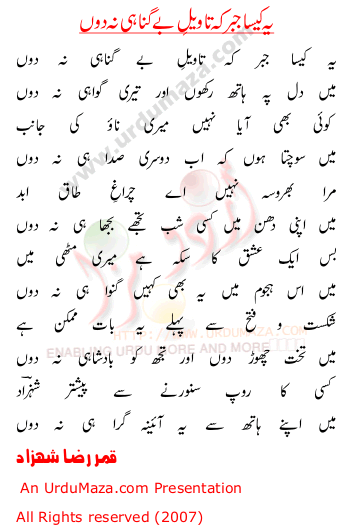 یہ کیسا جبر کہ تاویلِ بے گناہی نہ دوں
یہ کیسا جبر کہ تاویلِ بے گناہی نہ دوں
میں دل پہ ہاتھ رکھوں اور تیری گواہی نہ دوں
کوئی بھی آیا نہیں میری ناؤ کی جانب
میں سوچتا ہوں کہ اب دوسری صدا ہی نہ دوں
مرا بھروسہ نہیں اے چراغِ طاقِ ابد
میں اپنی دھن میں کسی شب تجھے بجھا ہی نہ دوں
بس ایک عشق کا سکہ ہے میری مٹھی میں
میں اس ہجوم میں یہ بھی کہیں گنوا ہی نہ دوں
شکست و فتح سے پہلے یہ بات ممکن ہے
میں تخت چھوڑ دوں اور تجھ کو بادشاہی نہ دوں
کسی کا روپ سنورنے سے پیشتر شہزاد
میں اپنے ہاتھ سے یہ آئینہ گرا ہی نہ دوں
قمر رضا شہزاد
An UrduMaza.com Presentation
All Rights reserved (2007)
www.urdumaza.com
HTTP://WWW.URDUMAZA.COM
ENABLING URDU MORE AND MORE